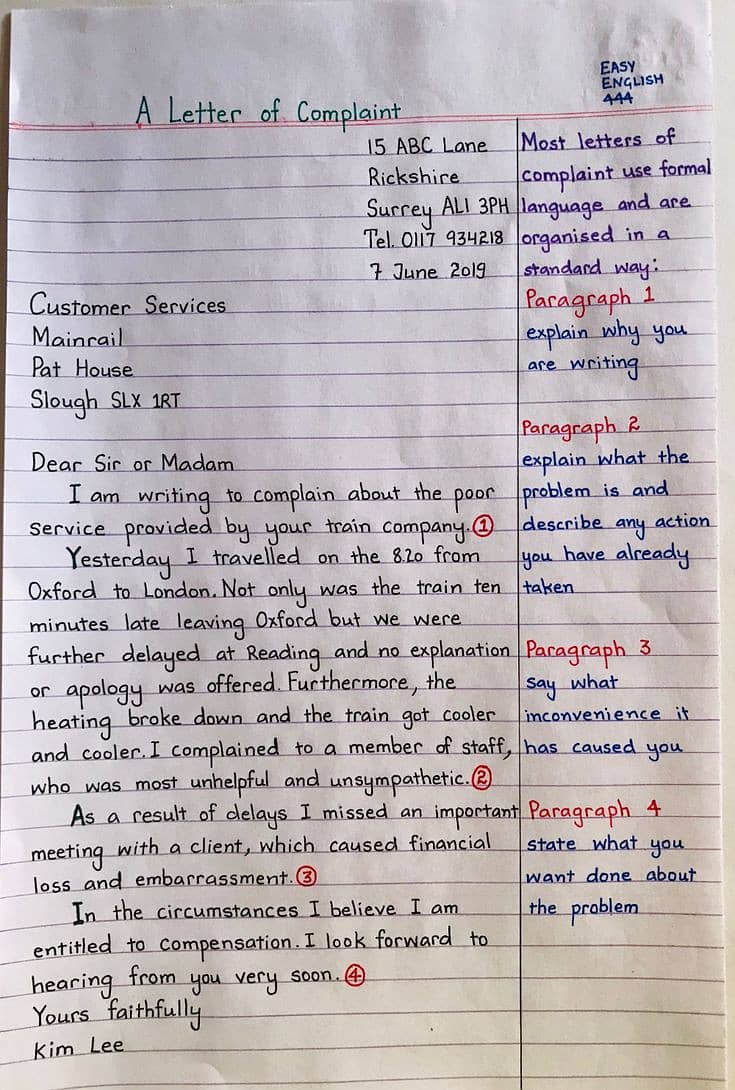 EASY
ENGLISH
444
A Letter of Complaint
15 ABC Lane
Rickshire
Surrey AL1 3PH
Tel. 0117 934218
7 June 2019
Customer Services
Mainrail
Pat House
Slough SLX 1RT
Dear Sir or Madam
I am writing to complain about the poor
service provided by your train company. ①
Yesterday I travelled on the 8.20 from
Oxford to London. Not only was the train ten
minutes late leaving Oxford but we were
further delayed at Reading and no explanation
or apology was offered. Furthermore, the
heating broke down and the train got cooler
and cooler. I complained to a member of staff,
who was most unhelpful and unsympathetic. ②
As a result of delays I missed an important
meeting with a client, which caused financial
loss and embarrassment. ③
In the circumstances I believe I am
entitled to compensation. I look forward to
hearing from you very soon. ④
Yours faithfully
Kim Lee
Most letters of
complaint use formal
language and are
organised in a
standard way:
Paragraph 1
explain why you
are writing
Paragraph 2
explain what the
problem is and
describe any action
you have already
taken
Paragraph 3
say what
inconvenience it
has caused you
Paragraph 4
state what you
want done about
the problem